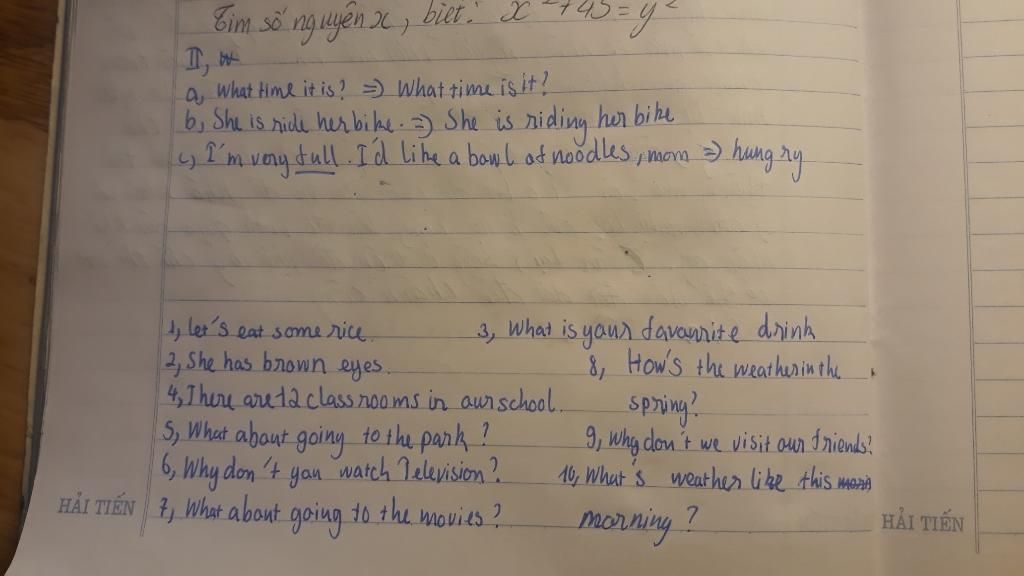 Tìm số nguyên x, biết: x² + 45 = y²
II,
a, What time it is? => What time is it?
b, She is ride her bike. => She is riding her bike
c, I'm very full. I'd like a bowl of noodles, mom => hungry
1, let's eat some rice. 3, What is your favourite drink
2, She has brown eyes. 8, How's the weather in the
4, There are 12 classrooms in our school. spring?
5, What about going to the park? 9, Why don't we visit our friends?
6, Why don't you watch Television? 10, What's weather like this
HẢI TIẾN 7, What about going to the movies? morning? HẢI TIẾN